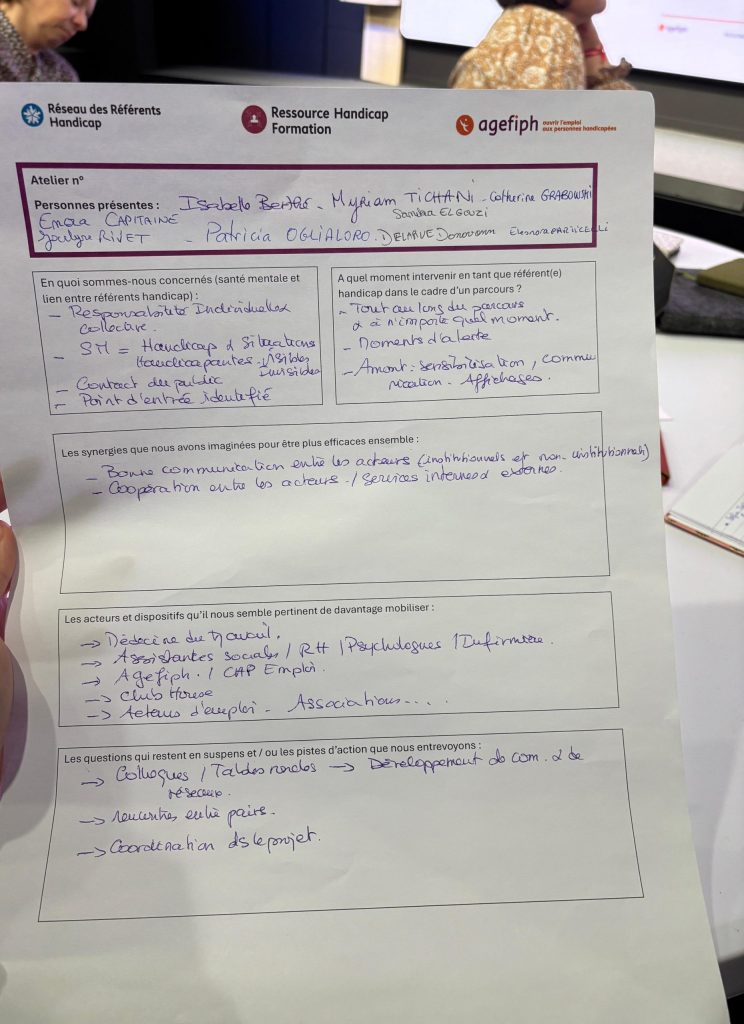 Réseau des Référents
Handicap
Ressource Handicap
Formation
agefiph
ouvrir l'emploi
aux personnes handicapées
agefiph
Atelier n°
Personnes présentes : Isabelle Berthé - Myriam TICHANI - Catherine GRABOWSKI
Emma CAPITAINE Sandra ELGOUZI
Jocelyne RIVET - Patricia OGLIALORO. DELARUE Donovann
En quoi sommes-nous concernés (santé mentale et
lien entre référents handicap) :
- Responsabilité Individuelle &
collective.
- SM = Handicap & Situations
Handicapantes. Visibles
Invisibles
- Contact du public
- Point d'entrée identifié
A quel moment intervenir en tant que référent(e)
handicap dans le cadre d'un parcours ?
- Tout au long du parcours
& à n'importe quel moment.
- Moments d'alerte
- Amont : sensibilisation, commu
nication - Affichages.
Les synergies que nous avons imaginées pour être plus efficaces ensemble :
- Bonne communication entre les acteurs (institutionnels et non-institutionnels)
- Coopération entre les acteurs / services internes & externes.
Les acteurs et dispositifs qu'il nous semble pertinent de davantage mobiliser :
-> Médecine du travail.
-> Assistantes sociales / RH / Psychologues / Infirmière.
-> Agefiph. / CAP Emploi.
-> Club House
-> Acteurs d'emploi - Associations....
Les questions qui restent en suspens et / ou les pistes d'action que nous entrevoyons :
-> Colloques / Tables rondes -> Développement de com. & de
réseaux.
-> rencontres entre pairs.
-> Coordination ds le projet.